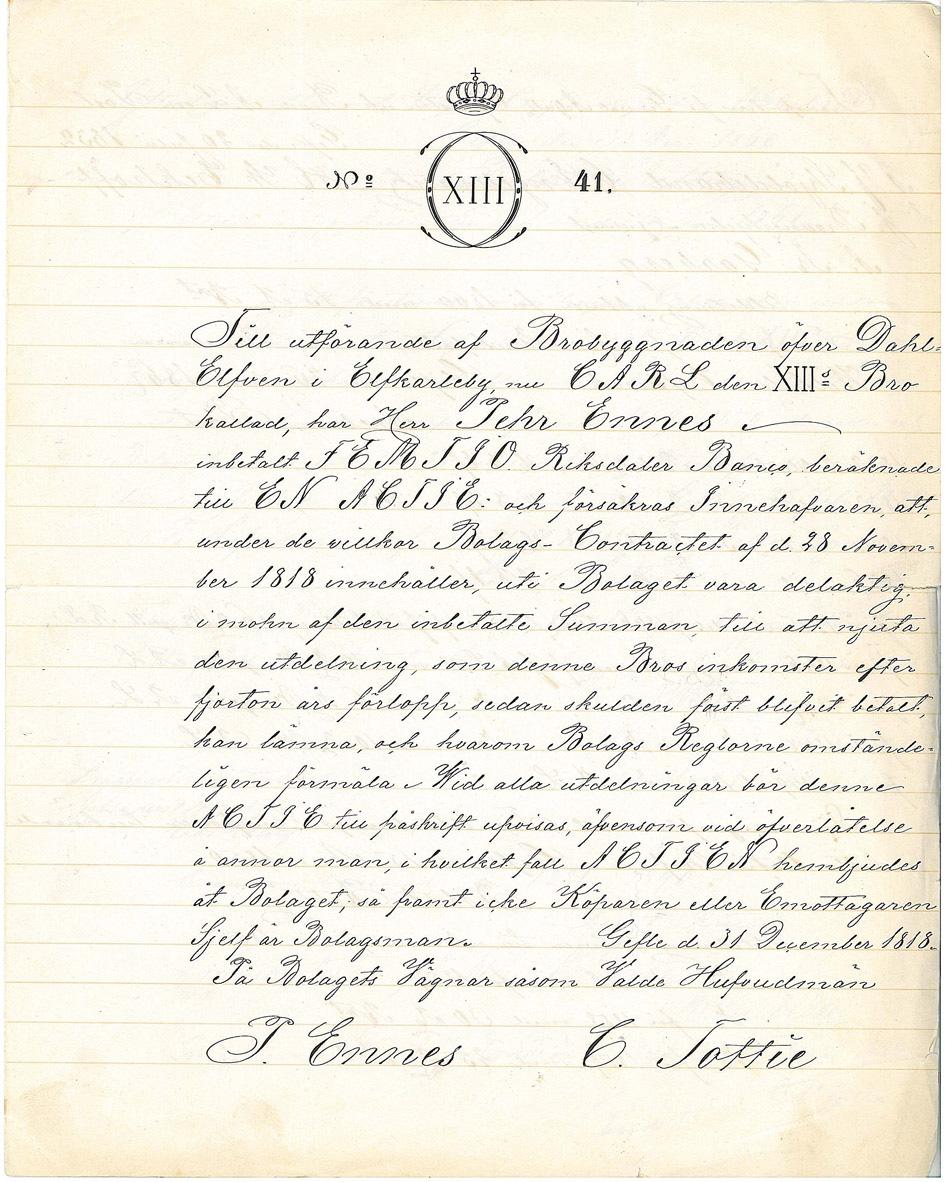 Nº XIII 41.
Till utförande af Brobyggnaden öfver Dahl-
Elfven i Elfkarleby, nu CARL den XIIIs Bro
kallad, har Herr Pehr Ennes
inbetalt FEMTIO Riksdaler Banco, beräknade
till EN ACTIE: och försäkras Innehafvaren, att,
under de villkor Bolags-Contractet af d. 28 Novem-
ber 1818 innehåller, uti Bolaget vara delaktig,
i mohn af den inbetalte Summan, till att njuta
den utdelning, som denne Bros inkomster efter
fjorton års förlopp, sedan skulden först blifvit betalt,
kan lämna, och hvarom Bolags Reglorne omstände-
ligen förmäla. Wid alla utdelningar bör denne
ACTIE till påskrift upvisas, äfvensom vid öfverlåtelse
å annor man, i hvilket fall ACTIEN hembjudes
åt Bolaget; så framt icke Köparen eller Emottagaren
Sjelf är Bolagsman. Gefle d. 31 December 1818.
På Bolagets Vägnar såsom Valde Hufvudmän
P. Ennes C. Tottie